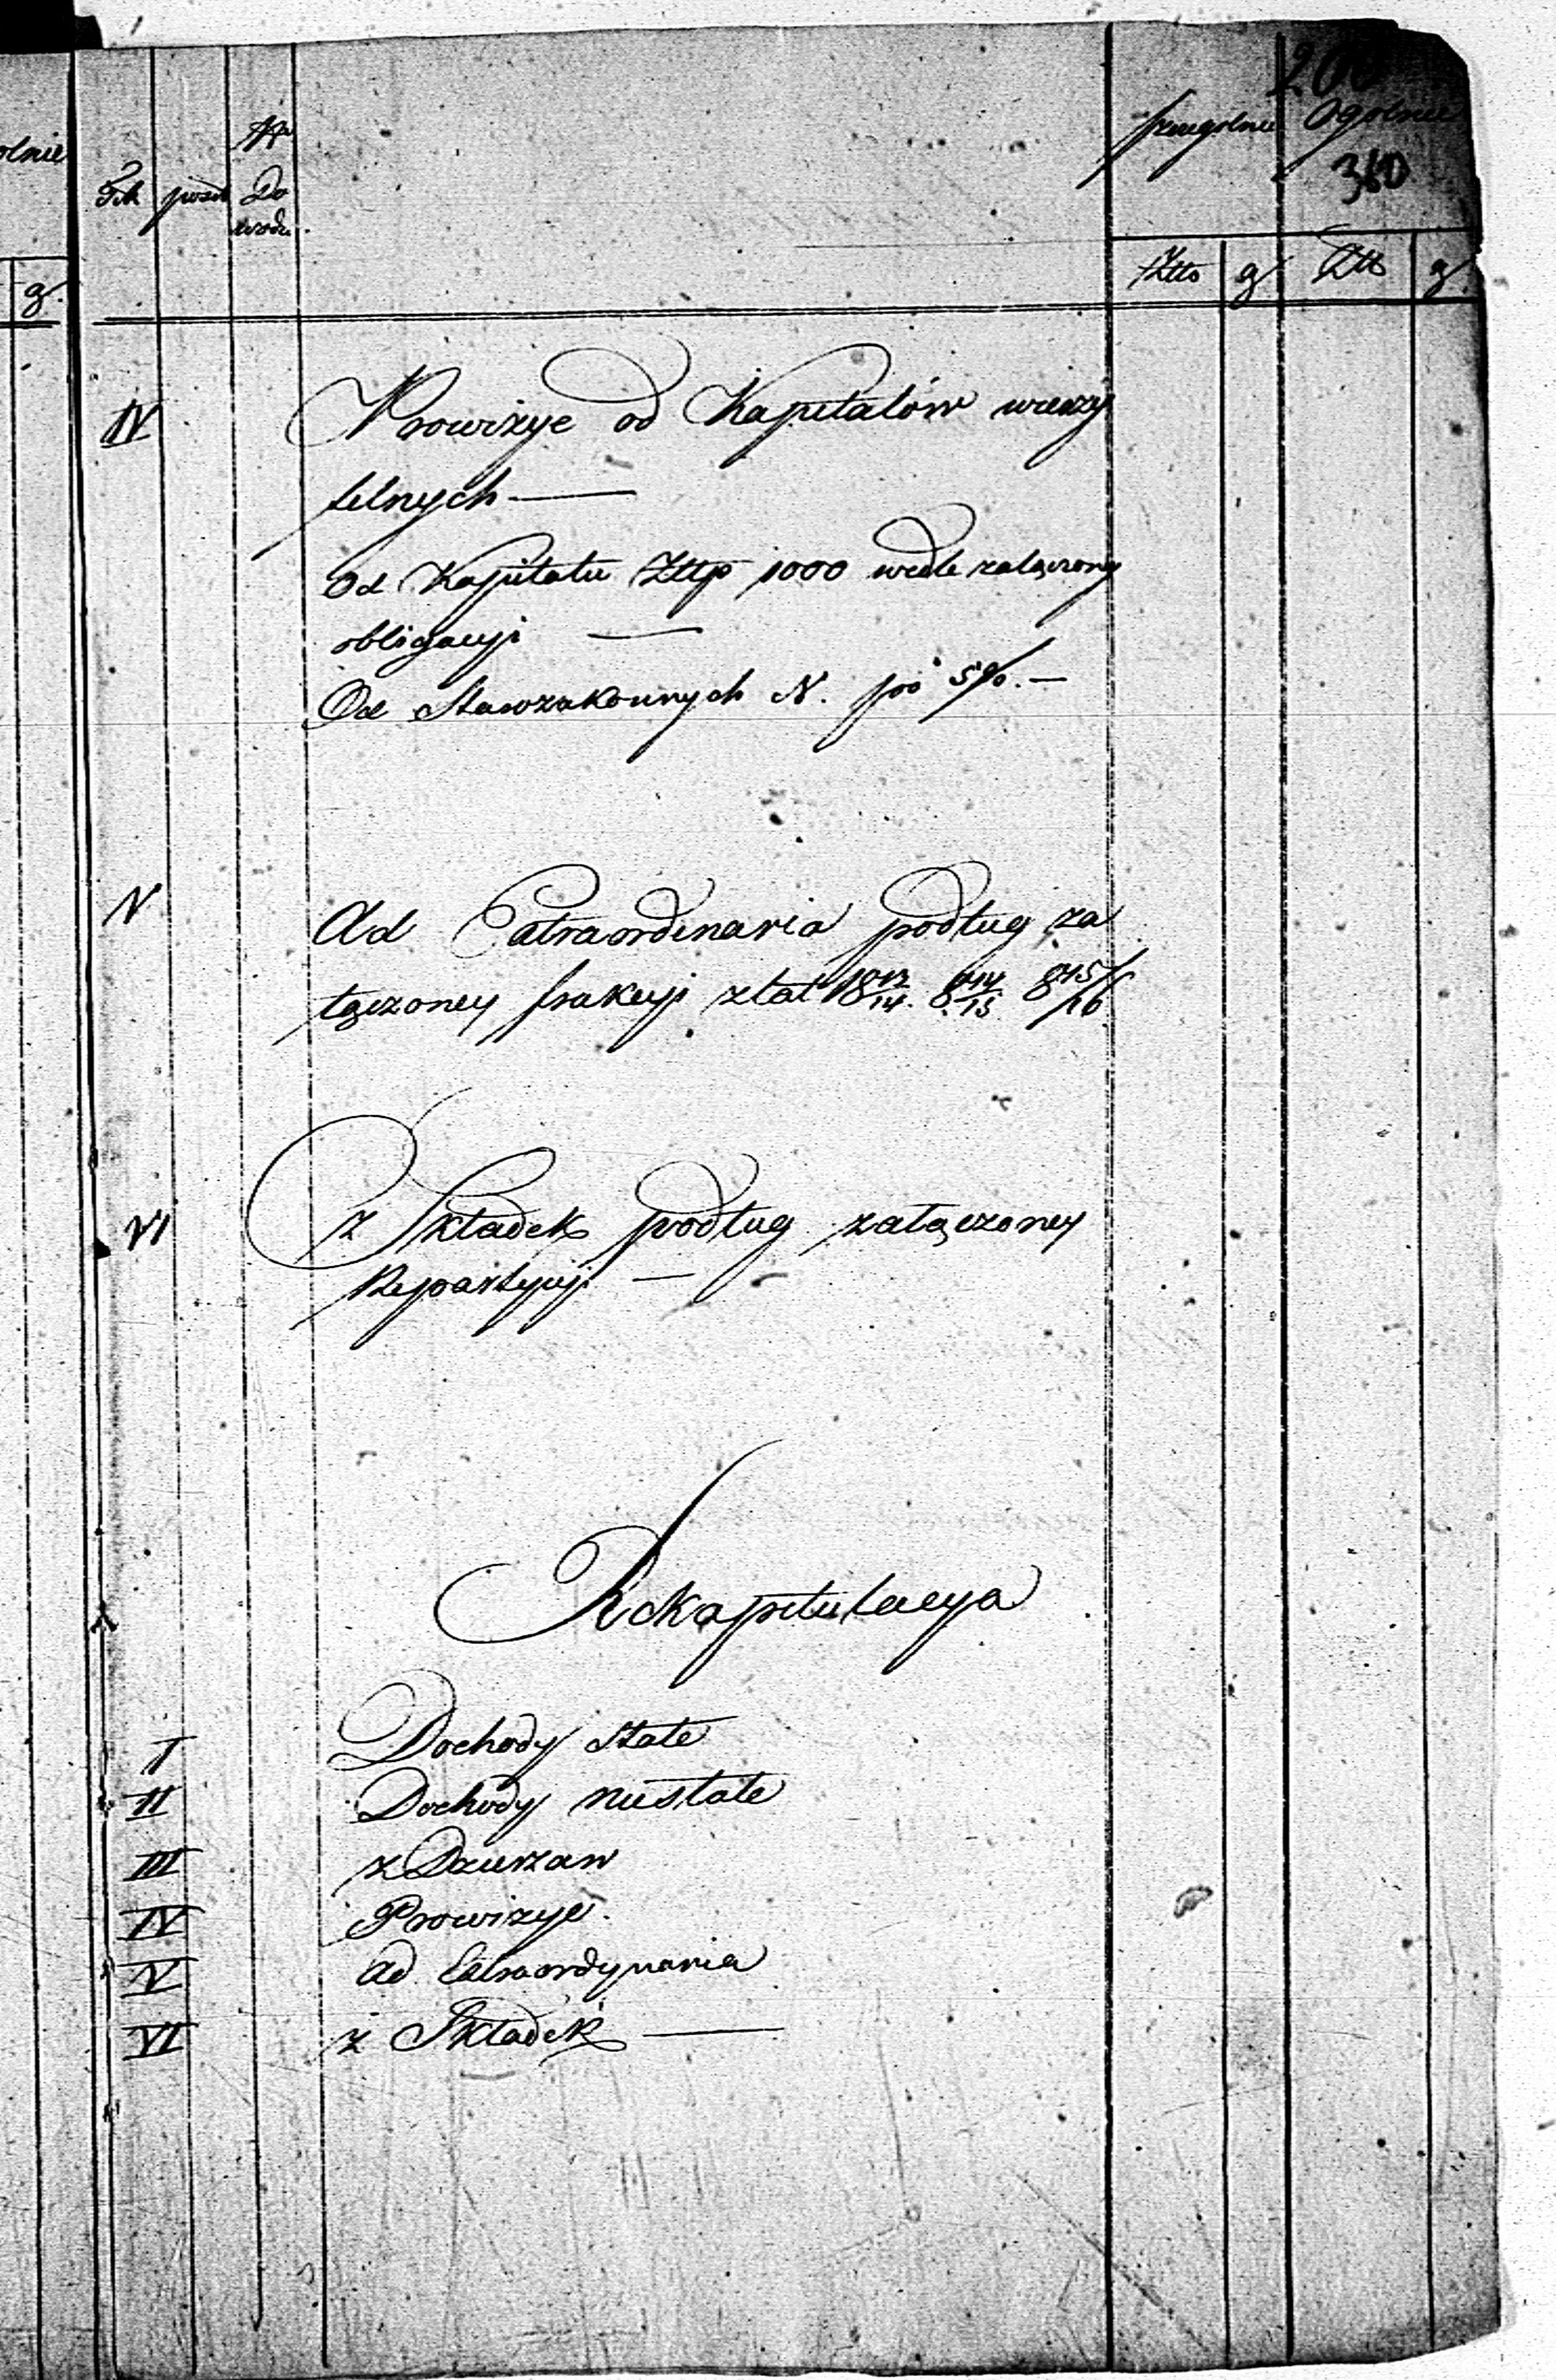 200
szczegolnie Ogolnie
360
olnie
Tit pozd No Do
wodu.
Złło g Złł g.
g.
IV Prowizye od Kapitałów wierzy
telnych —
od Kapitału Złłp 1000 wedle załączony
obligacyi —
Od Starozakonnych N. po 5%. —
V Ad Extraordinaria podług za
łączoney frakcyi z lat 18 13/14. 8 14/15 8 15/16
VI z Składek podług załączoney
Repartycyi —
Rekapitulacya
I Dochody Stałe
II Dochody niestałe
III z Dzierzaw
IV Prowizye.
V Ad Extraordynaria
VI z Składek —